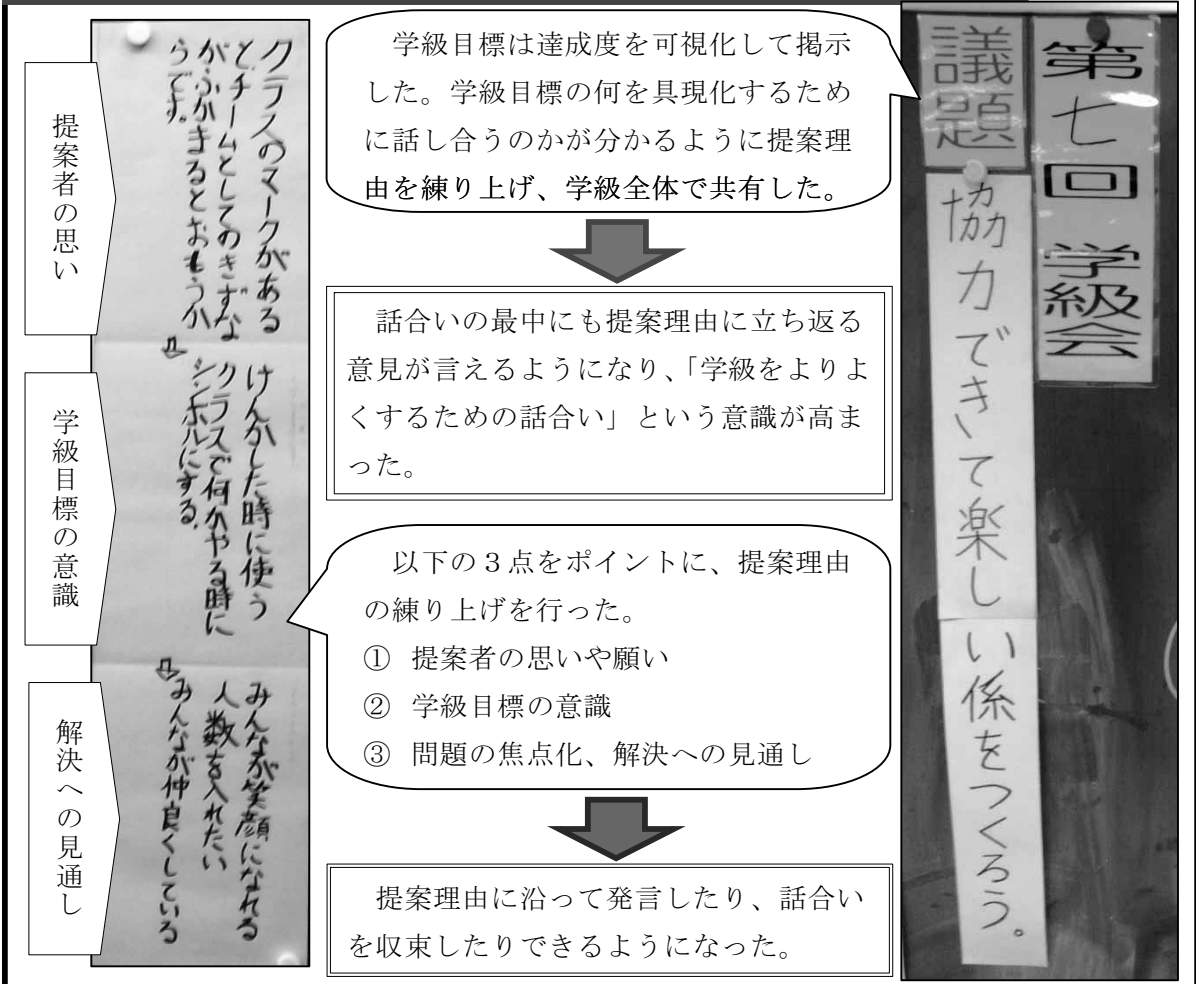 提案者の思い
学級目標の意識
解決への見通し
クラスのマークがある
と、チームとしてのきずな
がふかまるとおもうか
らです。
⇩
けんかした時に使う
クラスで何かやる時に
シンボルにする。
⇩
みんなが笑顔になれる
人数を入れたい
みんなが仲良くしている
学級目標は達成度を可視化して掲示
した。学級目標の何を具現化するため
に話し合うのかが分かるように提案理
由を練り上げ、学級全体で共有した。
話合いの最中にも提案理由に立ち返る
意見が言えるようになり、「学級をよりよ
くするための話合い」という意識が高ま
った。
以下の3点をポイントに、提案理由
の練り上げを行った。
① 提案者の思いや願い
② 学級目標の意識
③ 問題の焦点化、解決への見通し
提案理由に沿って発言したり、話合い
を収束したりできるようになった。
第七回 学級会
議題
協力できて楽しい係をつくろう。